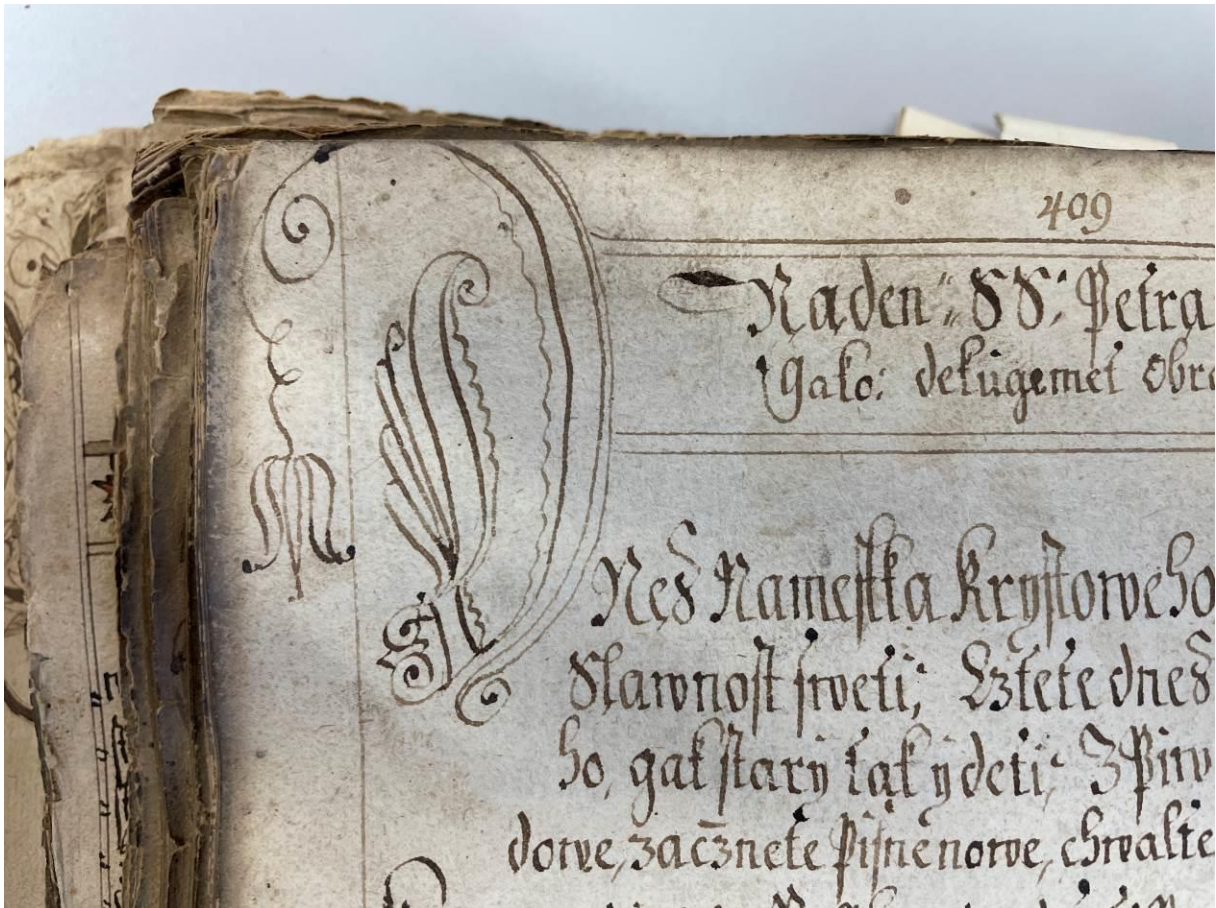 409
Naden SS. Petra
Gako: dekugemet Obra
DNeS Namestka Krystoweho
Slawnost sweti, Cztete dneS
ho, gak stary tak y deti, Z Piw
dowe, zacznete Pisne nowe, chwalte